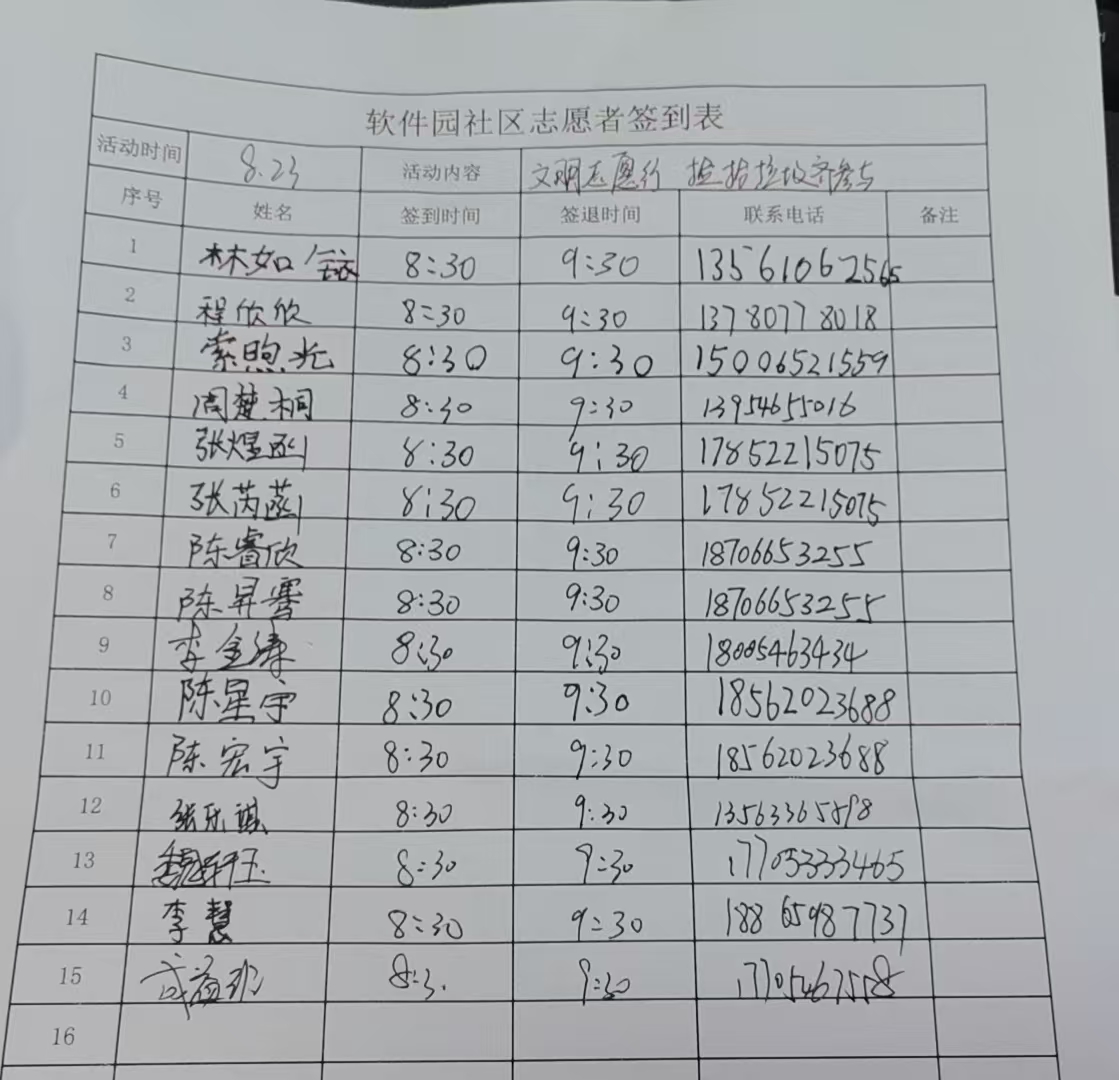 软件园社区志愿者签到表
活动时间 8.23 活动内容 文明志愿行 捡拾垃圾齐参与
序号 姓名 签到时间 签退时间 联系电话 备注
1 林如 8:30 9:30
2 程欣欣 8:30 9:30 13780778018
3 索煦光 8:30 9:30 15006521559
4 周楚桐 8:30 9:30 13954655016
5 张煜函 8:30 9:30 17852215075
6 张芮菡 8:30 9:30 17852215075
7 陈睿欣 8:30 9:30 18706653255
8 陈昇骞 8:30 9:30 18706653255
9 李金涛 8:30 9:30 18005463434
10 陈星宇 8:30 9:30 18562023688
11 陈宏宇 8:30 9:30 18562023688
12 张乐琪 8:30 9:30
13 魏轩玉 8:30 9:30 17705333465
14 李慧 8:30 9:30 18865987737
15 8:3. 9:30 17705467558
16